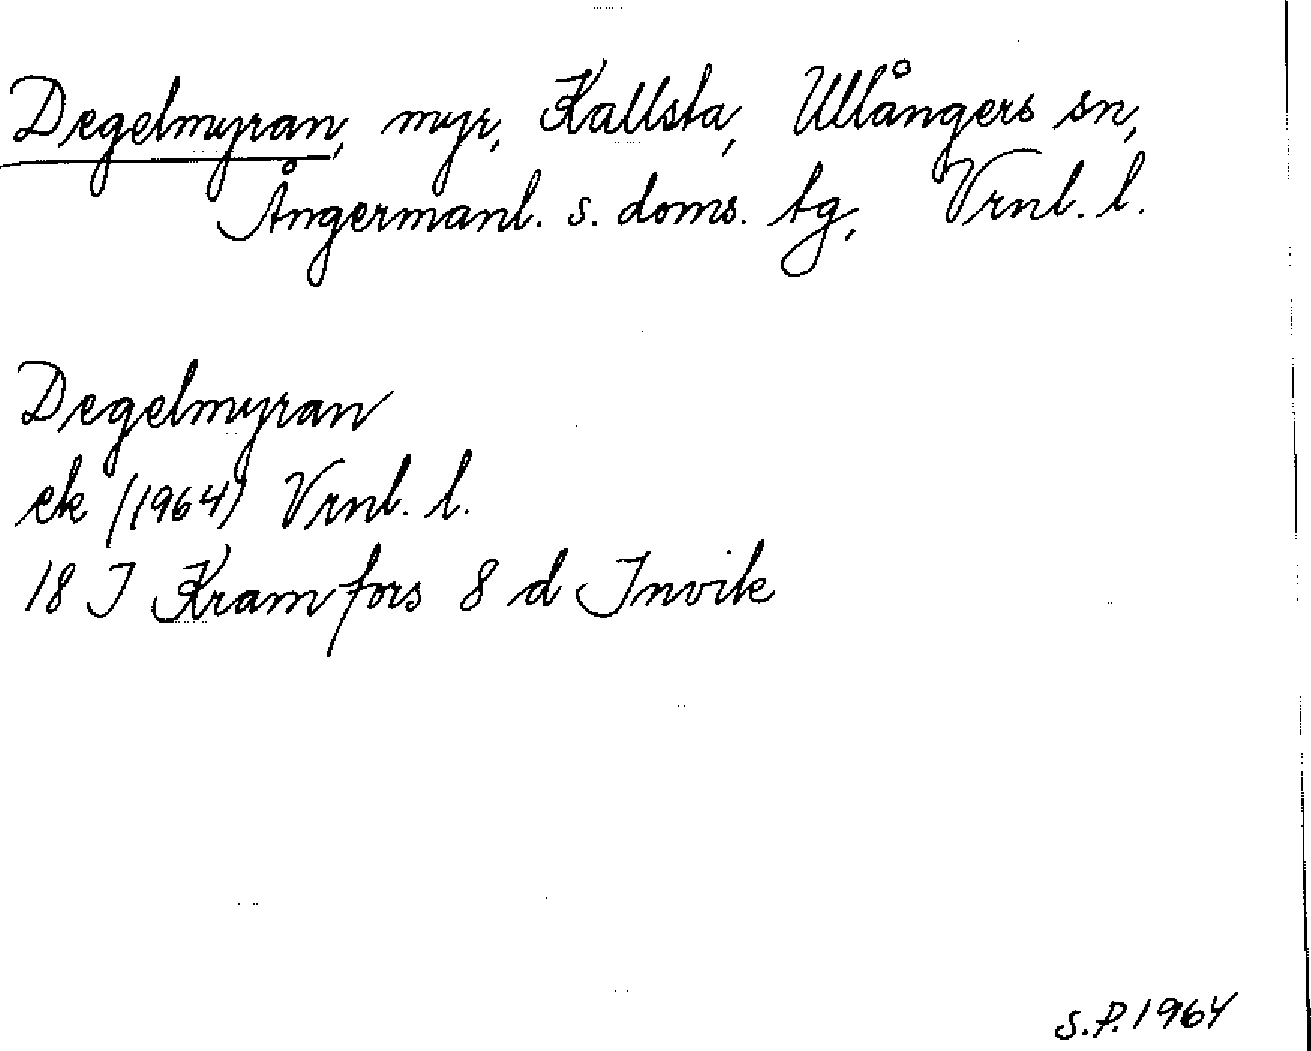 Degelmyran, myr, Kallsta, Ullångers sn,
Ångermanl. s. doms. tg, Vrnl. l.
Degelmyran
ek (1964) Vrnl. l.
18 I Kramfors 8 d Invik
S.P. 1964